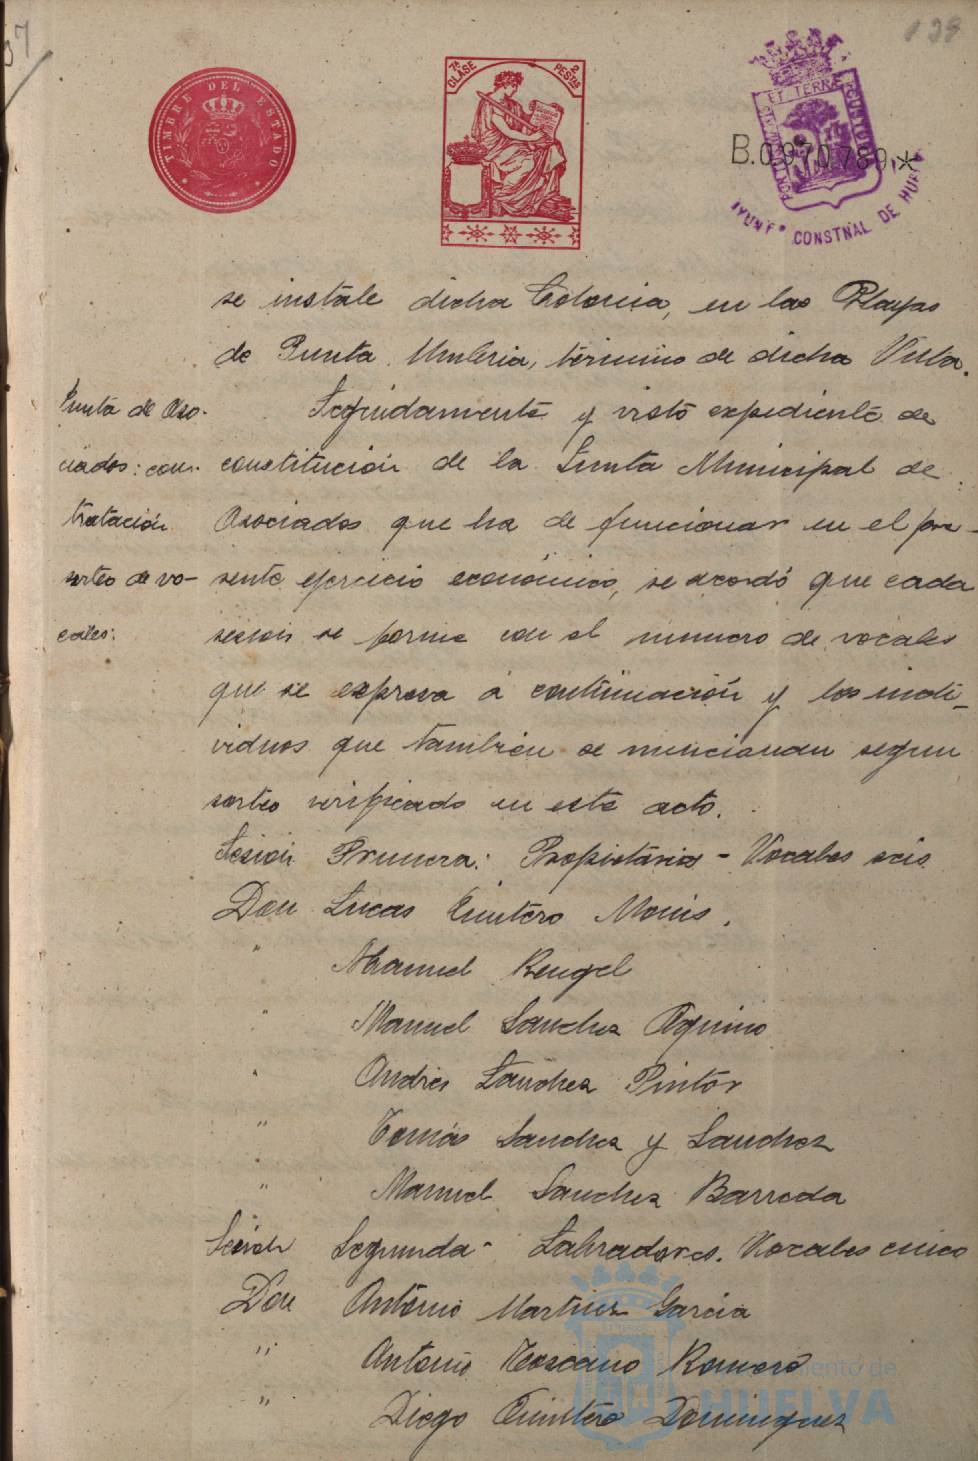 139
TIMBRE DEL ESTADO
7ª CLASE
2 PESTAS
B.0970.789*
PORTUS MARIS ET TERRÆ CUSTODIA
AYUNTº CONSTNAL DE HUELVA
se instale dicha Colonia, en las Playas
de Punta Umbria, término de dicha Villa.
Junta de Aso-
ciados: cons-
titución
sorteo de vo-
cales:
Seguidamente y visto expediente de
constitución de la Junta Municipal de
Asociados que ha de funcionar en el pre-
sente ejercicio económico, se acordó que cada
sesion se forme con el numero de vocales
que se expresa á continuación y los indi-
viduos que tambien se mencionan segun
sorteo verificado en este acto.
Sesion Primera: Propietarios - Vocales seis
Don Lucas Quintero Monis.
" Manuel Rengel
" Manuel Sanchez Aquino
" Andres Sanchez Pintor
" Tomás Sanchez y Sanchez
" Manuel Sanchez Barreda
Sesion Segunda - Labradores. Vocales cinco
Don Antonio Martinez Garcia
" Antonio Toscano Romero
" Diego Quintero Dominguez
Ayuntamiento de
HUELVA